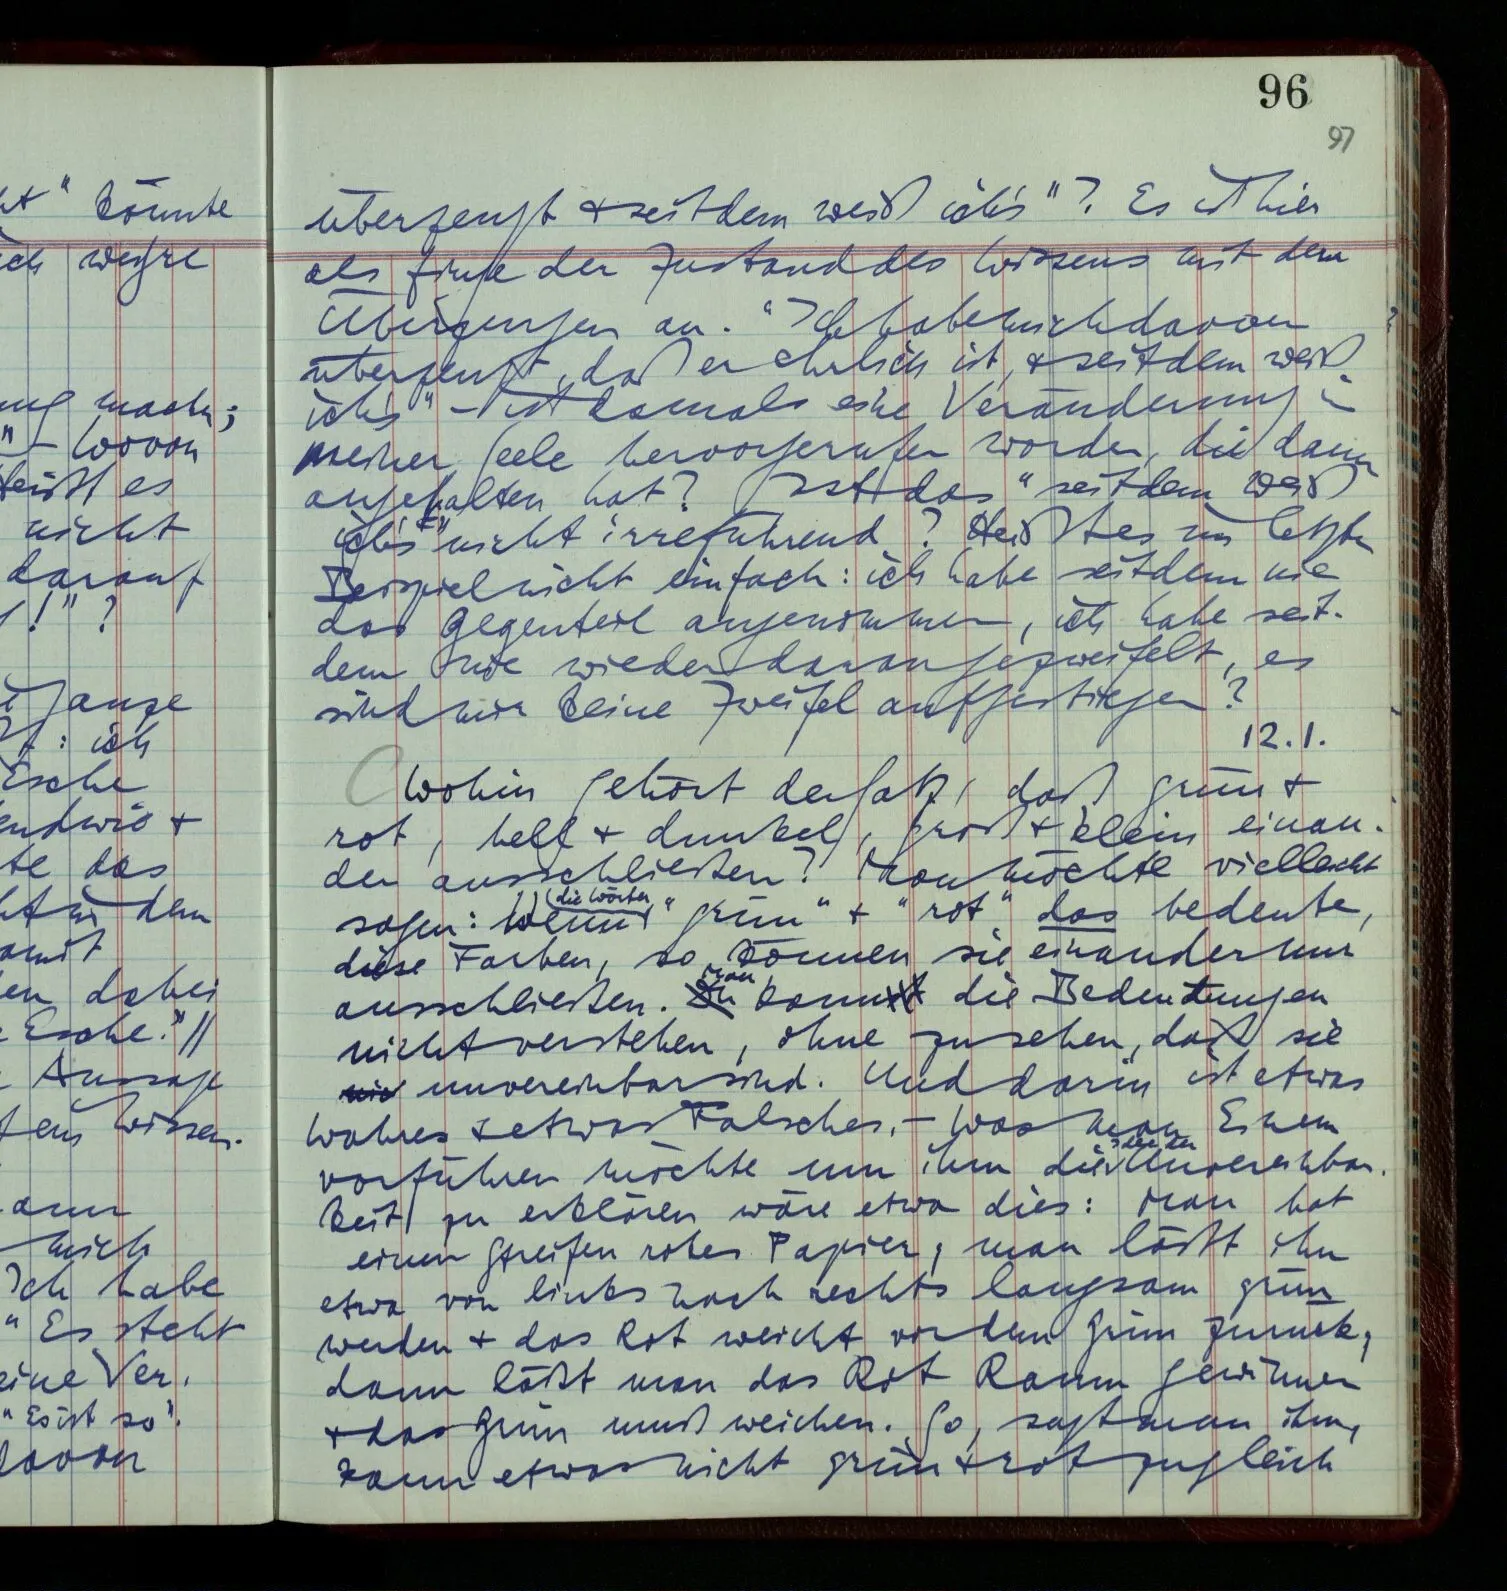 ht" könnte
ich wegre
ung machen;
" – Wovon
heißt es
nicht
darauf
!" ?
ganze
: ich
Esche
endwie +
te das
in dem
damit
en dabei
Esche." //
Aussage
ein Wissen.
ann
mich
Ich habe
" Es steht
eine Ver-
" Es ist so".
davon
96
97
überzeugt & seitdem weiß ich's"? Es ist hier
als finge der Zustand des Wissens mit dem
Überzeugen an. "Ich habe mich davon
überzeugt, daß er ehrlich ist, & seitdem weiß
ich's" – ist damals eine Veränderung in
meiner Seele hervorgerufen worden, die dann
angehalten hat? Ist das "seitdem weiß
ich's" nicht irreführend? Heißt es im letzten
Beispiel nicht einfach: ich habe seitdem nie
das Gegenteil angenommen, ich habe seit-
dem nie wieder daran gezweifelt, es
sind mir keine Zweifel aufgestiegen?
12.1.
Wohin gehört der Satz, daß grün &
rot, hell & dunkel, groß & klein einan-
der ausschließen? Man möchte vielleicht
sagen: Wenn die Wörter "grün" & "rot" das bedeuten,
diese Farben, so können sie einander nur
ausschließen. Du man kannst die Bedeutungen
nicht verstehen, ohne zu sehen, daß sie
unvereinbar sind. Und darin ist etwas
Wahres & etwas Falsches. – Was man Einem
vorführen möchte um ihm die Unvereinbar-
keit zu erklären wäre etwa dies: Man hat
einen Streifen rotes Papier, man läßt ihn
etwa von links nach rechts langsam grün
werden & das Rot weicht vor dem Grün zurück,
dann läßt man das Rot Raum gewinnen
& das Grün muß weichen. So, sagt man ihm,
kann etwas nicht grün & rot zugleich